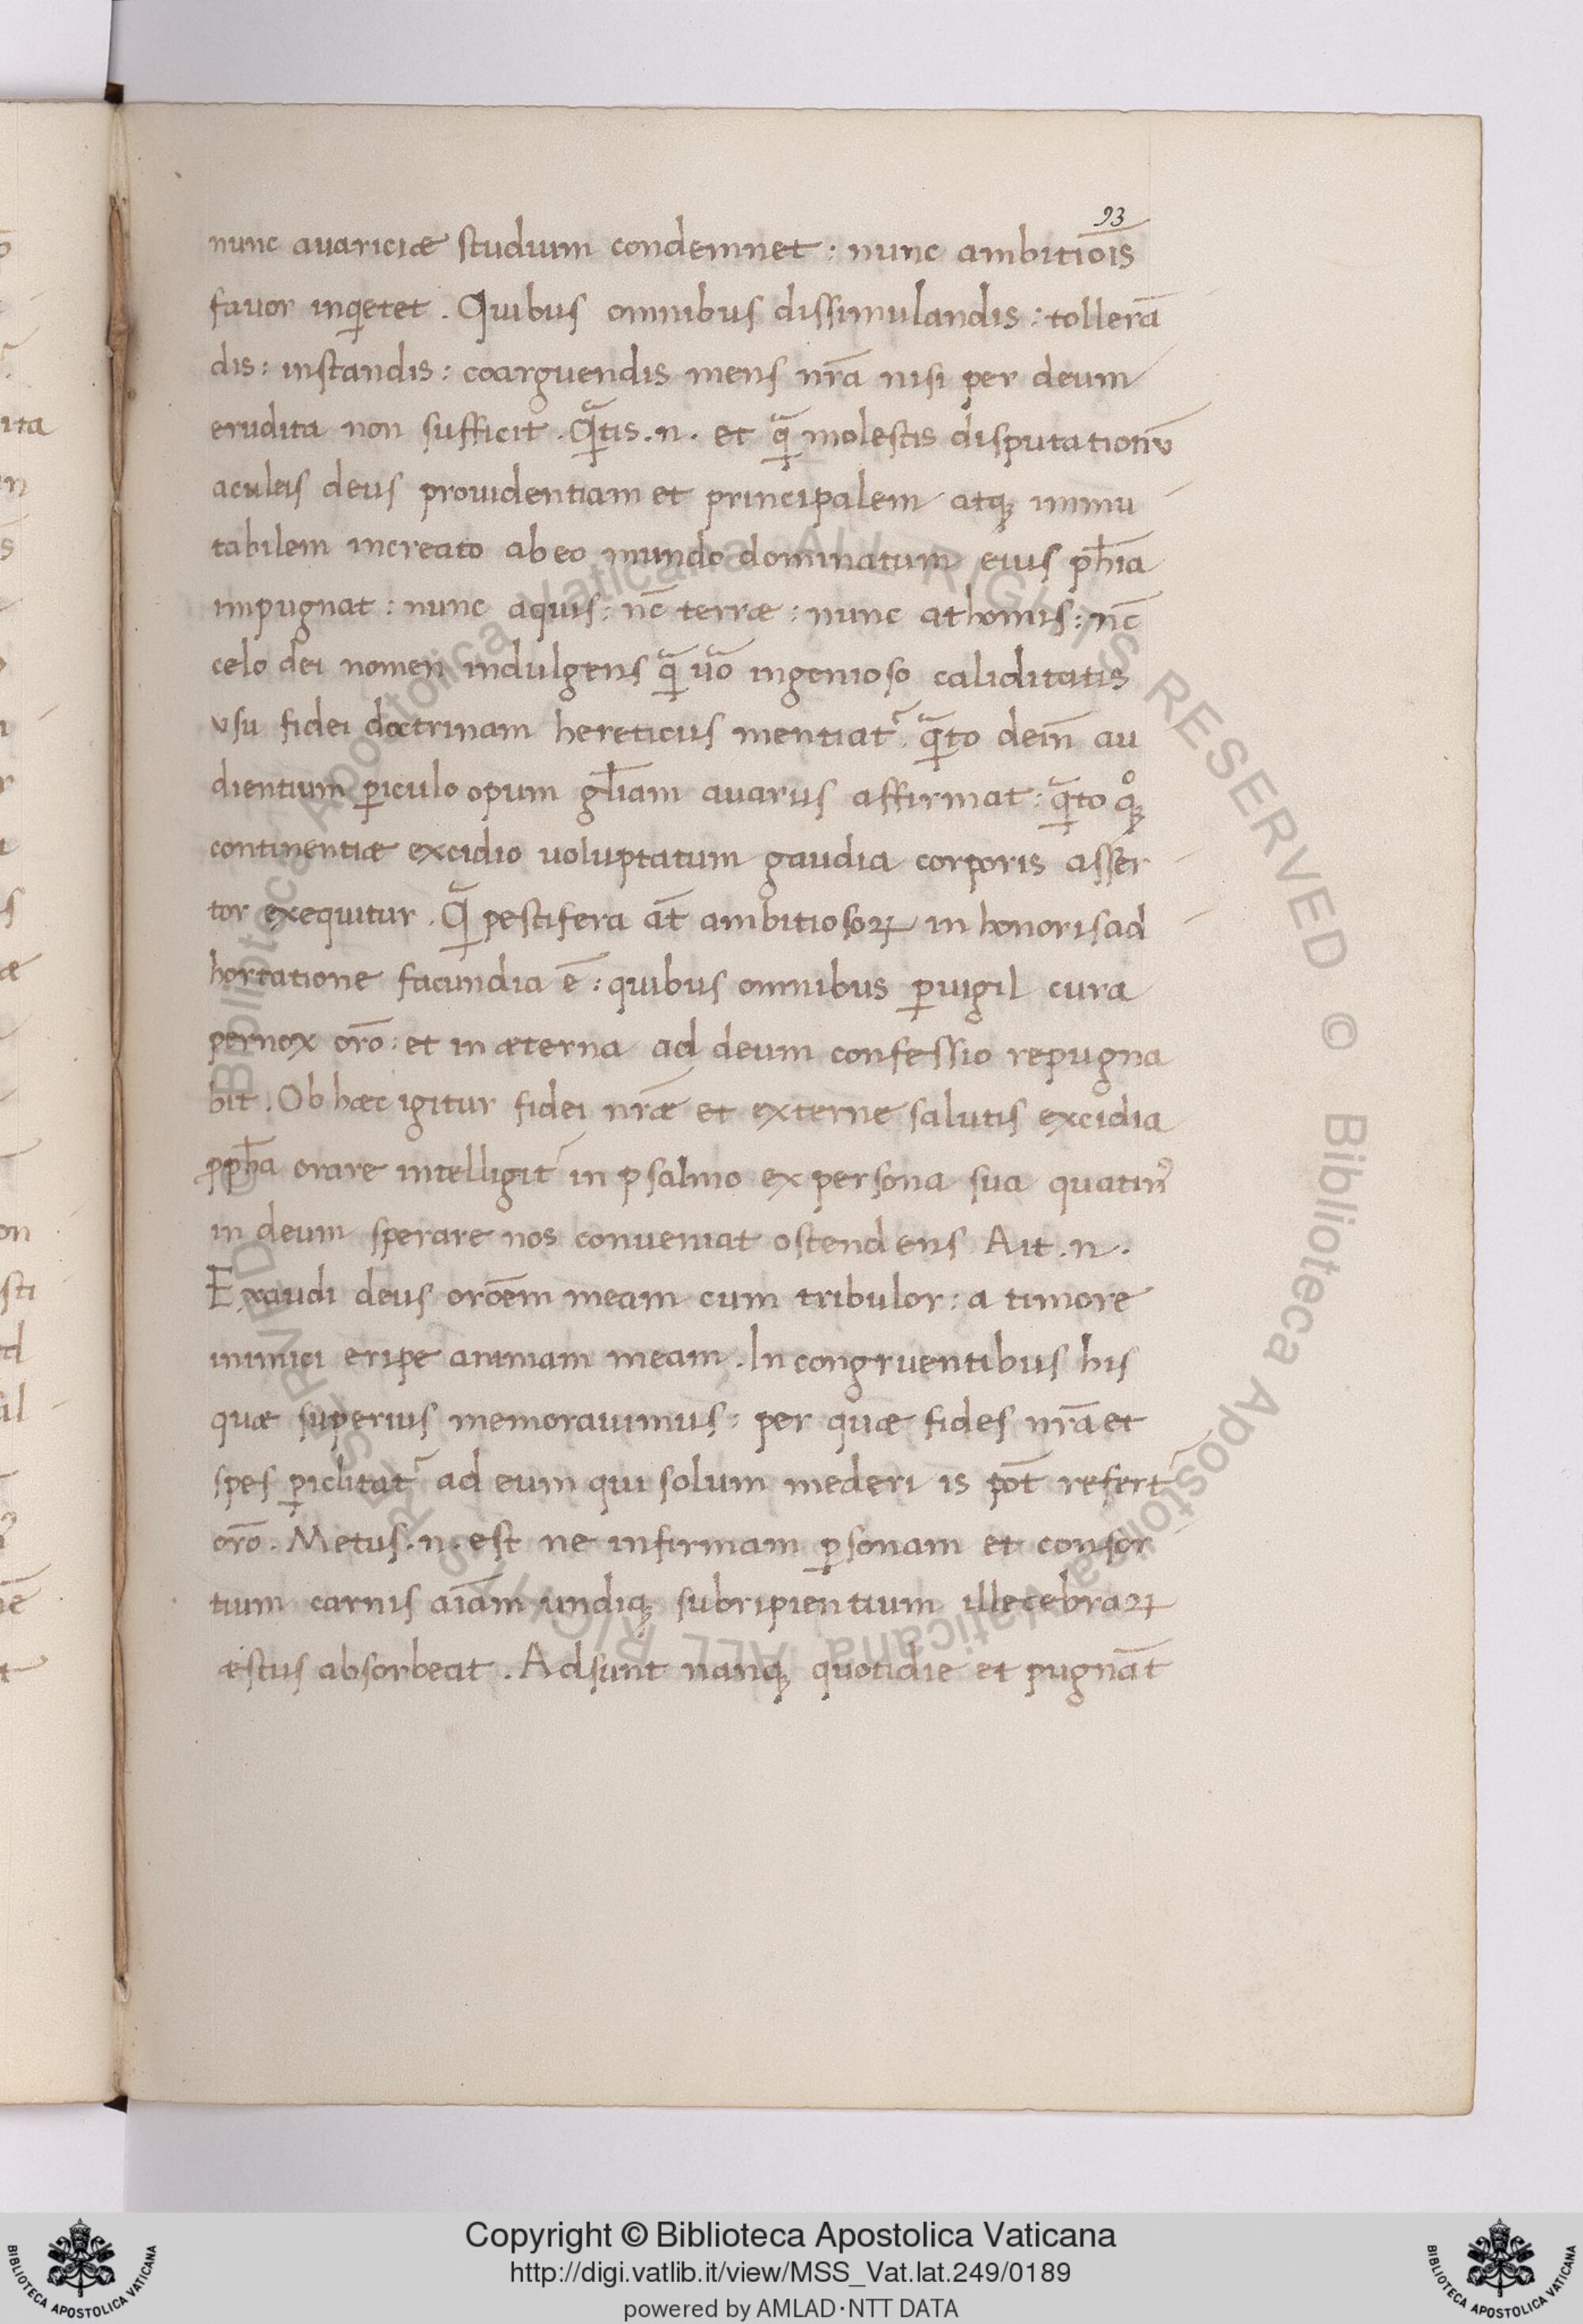 93
nunc auariciæ studium condemnet : nunc ambitiōis
fauor inqetet . Quibus omnibus dissimulandis : tollerā
dis : instandis : coarguendis mens nr̄a nisi per deum
erudita non sufficit . Qᷓtis .n. et qᷓ molestis disputationū
aculeis deus prouidentiam et principalem atqꝫ immu
tabilem increato ab eo mundo dominatum eius ph̄ia
impugnat : nunc aquis : nc̄ terræ : nunc athomis : nc̄
celo dei nomen indulgens qᷓ uͣo ingenioso caliditatis
vsu fidei doctrinam hereticus mentiat᷑ . qᷓto dein̄ au
dientium ꝑiculo opum gl̄iam auarus affirmat : qᷓto qͦꝫ
continentiæ excidio uoluptatum gaudia corporis asser
tor exequitur . Qᷓ pestifera at̄ ambitiosoꝝ in honoris ad
hortatione facundia ē : quibus omnibus ꝑuigil cura
pernox orō : et in æterna ad deum confessio repugna
bit . Ob hæc igitur fidei nr̄æ et externe salutis excidia
ꝓph̄a orare intelligit᷑ in psalmo ex persona sua quatinꝰ
in deum sperare nos conueniat ostendens Ait .n.
Exaudi deus orōem meam cum tribulor : a timore
inimici eripe animam meam . In congruentibus his
quæ superius memorauimus : per quæ fides nr̄a et
spes ꝑiclitat᷑ ad eum qui solum mederi is pot̄ refert᷑
orō . Metus .n. est ne infirmam ꝑsonam et consor
tium carnis aīam undiqꝫ subripientium illecebraꝝ
æstus absorbeat . Adsunt nanqꝫ quotidie et pugnāt
Copyright © Biblioteca Apostolica Vaticana
http://digi.vatlib.it/view/MSS_Vat.lat.249/0189
powered by AMLAD·NTT DATA